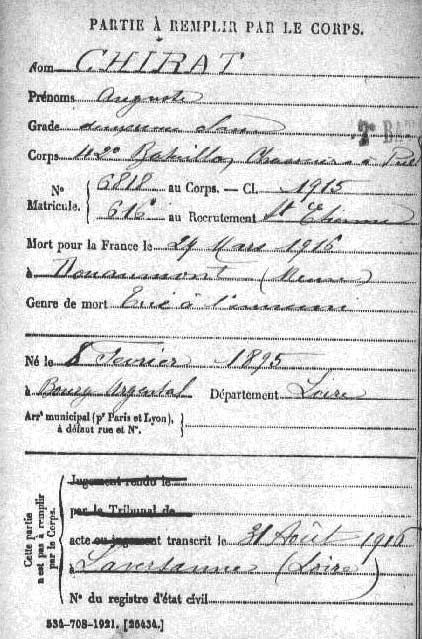 PARTIE À REMPLIR PAR LE CORPS.
Nom CHIRAT
Prénoms Auguste
Grade deuxième
Corps 102e Bataillon Chasseurs à Pied
No Matricule. 6818 au Corps. — Cl. 1915
616 au Recrutement St Etienne
Mort pour la France le 24 Mars 1916
à Douaumont (Meuse)
Genre de mort Tué à l'ennemi
Né le 8 Février 1895
à Bourg Argental Département Loire
Arrt municipal (pr Paris et Lyon),
à défaut rue et No.
Cette partie n'est pas à remplir par le Corps.
Jugement rendu le
par le Tribunal de
acte ou jugement transcrit le 31 Août 1916
à Laversanne (Loire)
No du registre d'état civil
534-708-1921. [26434.]